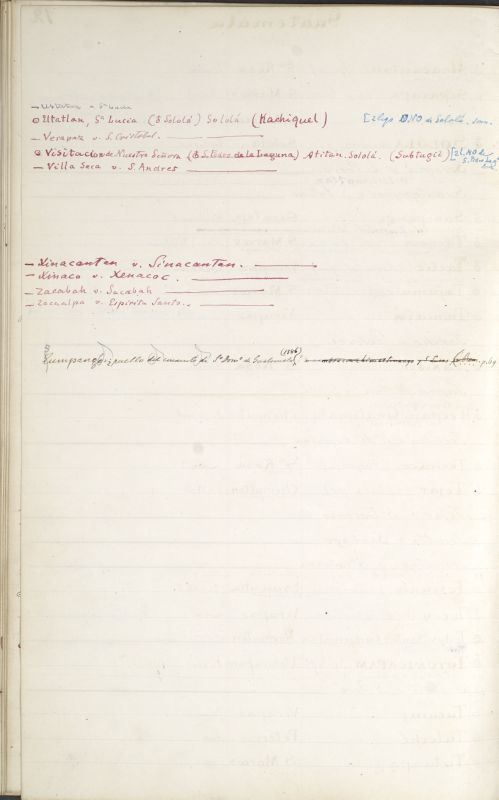 — Utatlan v. Sta Lucia
Utatlan, Sta Lucia (B Sololá) Sololá (Kachiquel) [2 lgs ONO de Sololá.
— Verapaz v. S. Cristobal.
Visitacion de Nuestra Señora (B S. Pedro de la Laguna) Atitan. Sololá. (Subtugil)
— Villa Seca v. S. Andres
— Xinacanten v. Sinacantan.
— Xinaco v. Xenacoc.
— Zacabah v. Sacabah
— Zacualpa v. Espiritu Santo.
Zumpango, pueblo del convento de Sto Domo de Guatemala (1586) p. 69